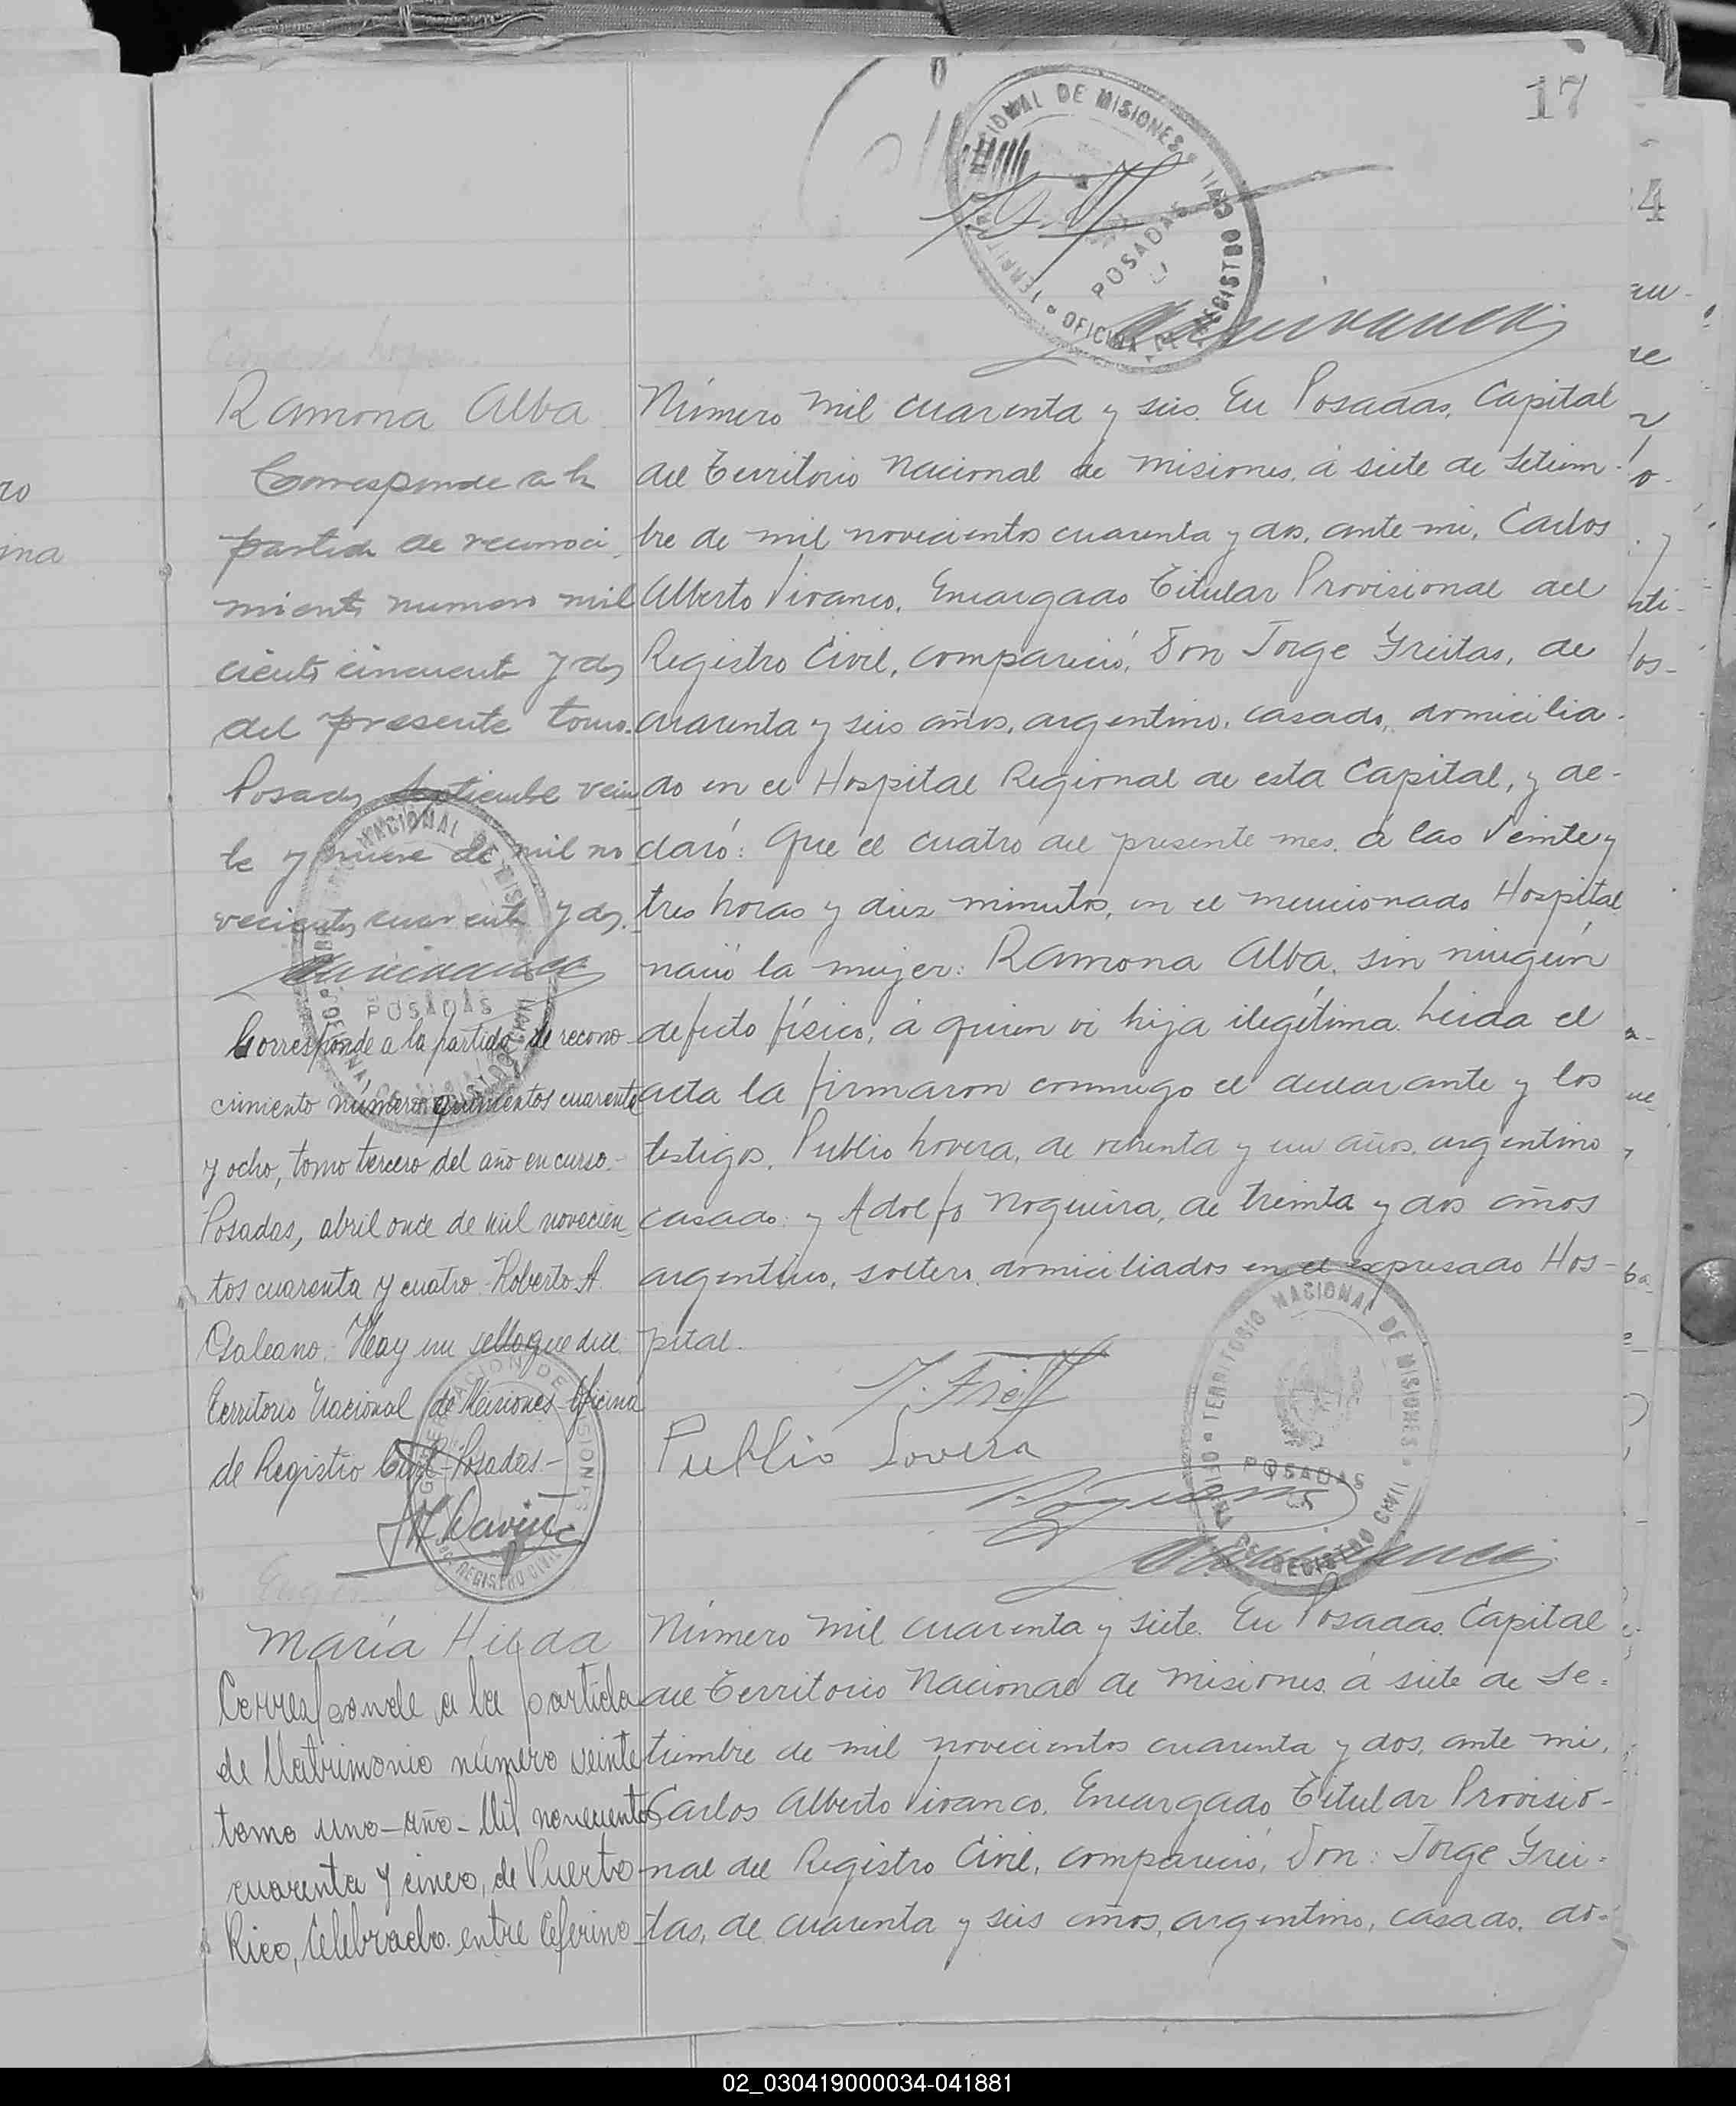 17
TERRITORIO NACIONAL DE MISIONES
OFICINA DE REGISTRO CIVIL
POSADAS
Ramona Alba
Corresponde a la
partida de reconoci
miento numero mil
ciento cincuenta y dos
del presente tomo.
Posadas Septiembre vein
te y nueve de mil no
vecientos cuarenta y dos.
POSADAS
Corresponde a la partida de recono
cimiento número quinientos cuarenta
y ocho, tomo tercero del año en curso.-
Posadas, abril once de mil novecien
tos cuarenta y cuatro - Roberto A.
Galeano. Hay un sello que dice
Territorio Nacional de Misiones - Oficina
de Registro Civil - Posadas -
Número mil cuarenta y seis. En Posadas, Capital
del Territorio Nacional de Misiones, á siete de Setiem-
bre de mil novecientos cuarenta y dos, ante mi, Carlos
Alberto Vivanco, Encargado Titular Provisional del
Registro Civil, compareció, Don Jorge Freitas, de
cuarenta y seis años, argentino, casado, domicilia-
do en el Hospital Regional de esta Capital, y de-
claró: Que el cuatro del presente mes, á las veinte y
tres horas y diez minutos, en el mencionado Hospital
nació la mujer: Ramona Alba, sin ningún
defecto físico, á quien vi hija ilegítima. Leida el
acta la firmaron conmigo el declarante y los
testigos, Publio Lovera, de ochenta y un años, argentino
casado: y Adolfo Noguiera, de treinta y dos años
argentino, soltero, domiciliados en el expresado Hos-
pital.
Publio Lovera
TERRITORIO NACIONAL DE MISIONES
OFICINA DE REGISTRO CIVIL
POSADAS
María Hilda
Corresponde a la partida
de Matrimonio número veinte
tomo uno - año - Mil novecientos
cuarenta y cinco, de Puerto
Rico, Celebrado entre Ceferino
Número mil cuarenta y siete. En Posadas, Capital
del Territorio Nacional de Misiones, á siete de Se-
tiembre de mil novecientos cuarenta y dos, ante mi,
Carlos Alberto Vivanco, Encargado Titular Provisio-
nal del Registro Civil, compareció, Don: Jorge Frei-
tas, de cuarenta y seis años, argentino, casado, do-
02_030419000034-041881